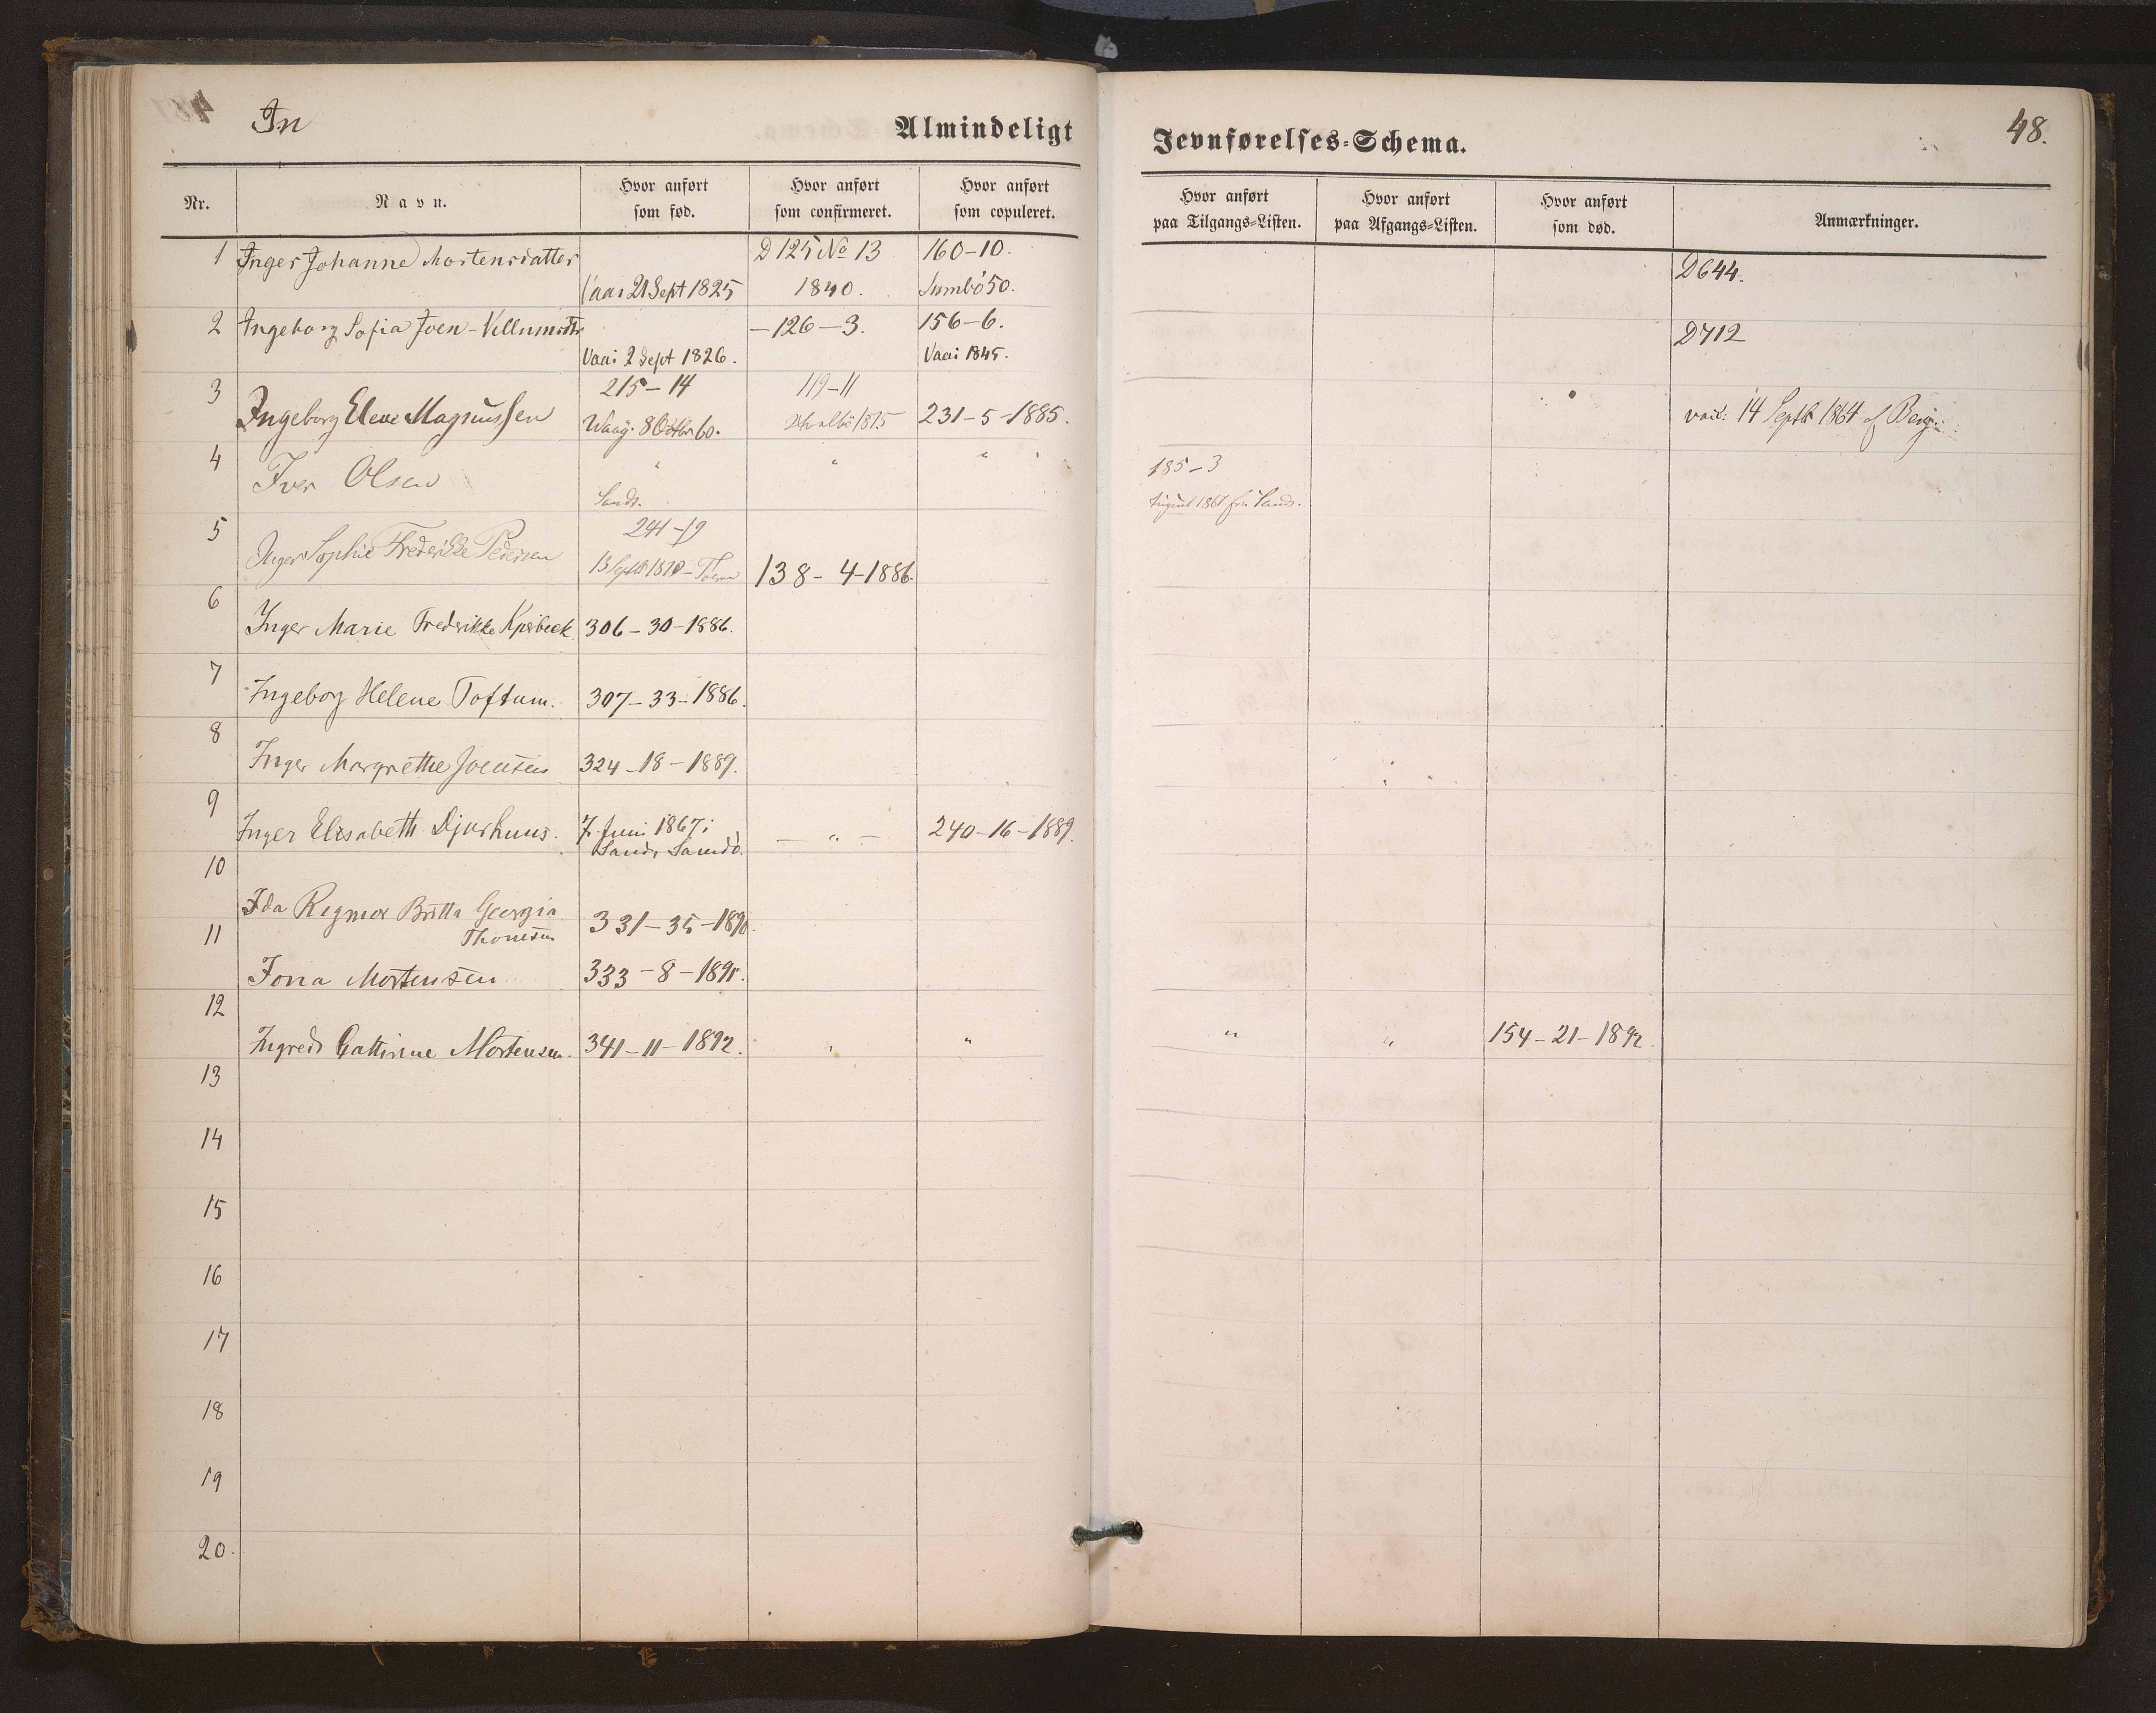 In
Almindeligt Jevnførelses-Schema.
48.
Nr. Navn. Hvor anført som fød. Hvor anført som confirmeret. Hvor anført som copuleret. Hvor anført paa Tilgangs-Listen. Hvor anført paa Afgangs-Listen. Hvor anført som død. Anmærkninger.
1 Inger Johanne Mortensdatter D 125 No 13 160-10. D644.
Vaai 21 Sept 1825 1840. Sumbö 50.
2 Ingeborg Sofia Joen-Villumsdtr -126-3. 156-6. D712
Vaai 2 Sept 1826. Vaai 1845.
3 215-14 119-11
Ingeborg Elene Magnussen Waag. 8 Octbr 60. Hvalbö 1875 231-5-1885. vac: 14 Septbr 1864 af Berg.
4 Iver Olsen " " " 185-3
Sand. August 1861 fra Sand.
5 241-19
Inger Sophie Frederikke Pedersen 13 Septbr 1870 138-4-1886.
6
Inger Marie Frederikke Kjærbæck 306-30-1886.
7
Ingeborg Helene Toftum. 307-33-1886.
8
Inger Margrethe Joensen 324-18-1889.
9
Inger Elisabeth Djurhuus. 7. Juni 1867 i - " - 240-16-1889.
Sand, Sandö.
10
Ida Regmor Britta Georgia 331-35-1890.
11 Thomsen
Jona Mortensen 333-8-1891.
12
Ingred Cathrine Mortensen. 341-11-1892. " " " " 154-21-1892.
13
14
15
16
17
18
19
20.